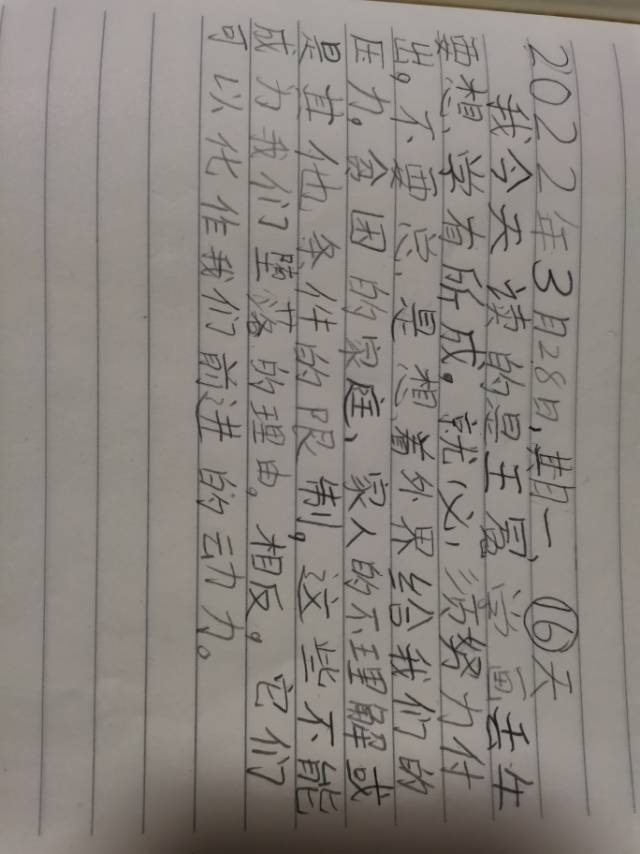 2022年3月28日,期一,⑯天
我今天读的是王冕学画荷生
要想学有所成。就必须努力付
出。不要总是想着外界给我们的
压力。贫困的家庭、家人的不理解或
是其他条件的限制,这些不能
成为我们堕落的理由。相反。它们
可以化作我们前进的动力。